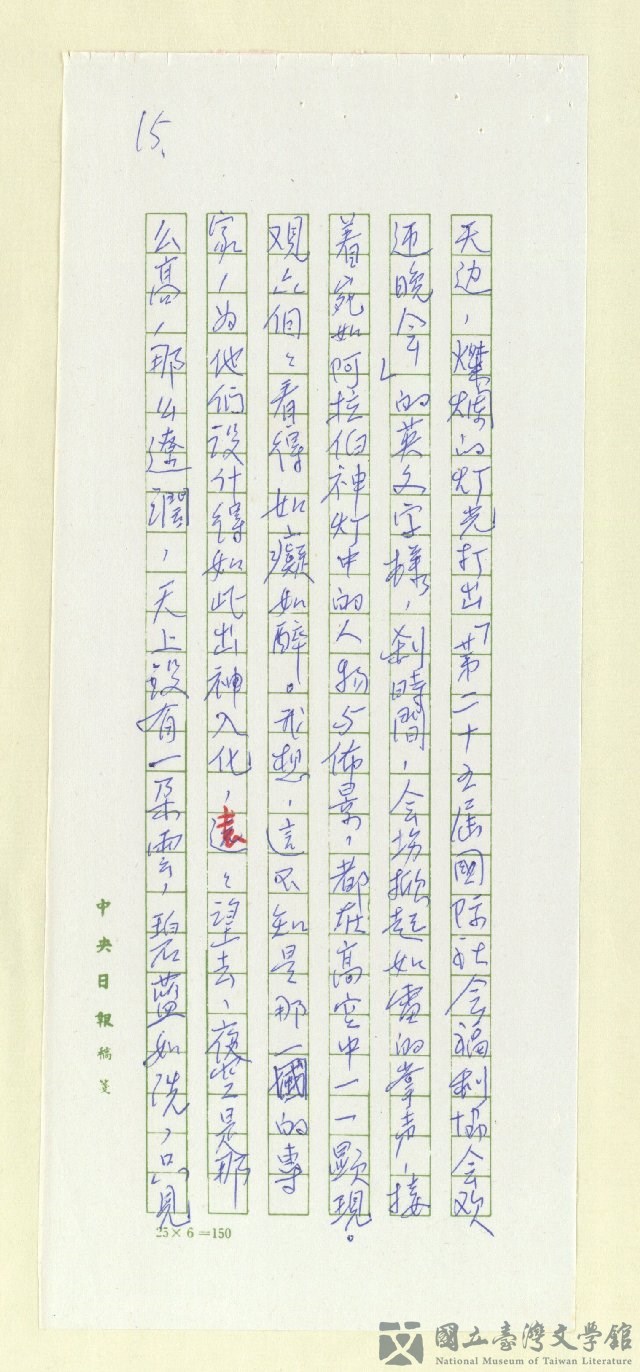 15、
天边，燦爛的灯光打出「第二十五届國际社会福利協会欢
迎晚会」的英文字樣，刹時間，会場掀起如雷的掌声，接
着宛如阿拉伯神灯中的人物与佈景，都在高空中一一顯現。
观众個々看得如癡如醉。我想，這不知是那一國的專
家，为他們設计得如此出神入化，遠々望去，夜空是那
么高，那么遼濶，天上沒有一朵雲，碧藍如洗，只見
中央日報稿箋
25×6=150
國立臺灣文學館
National Museum of Taiwan Literature